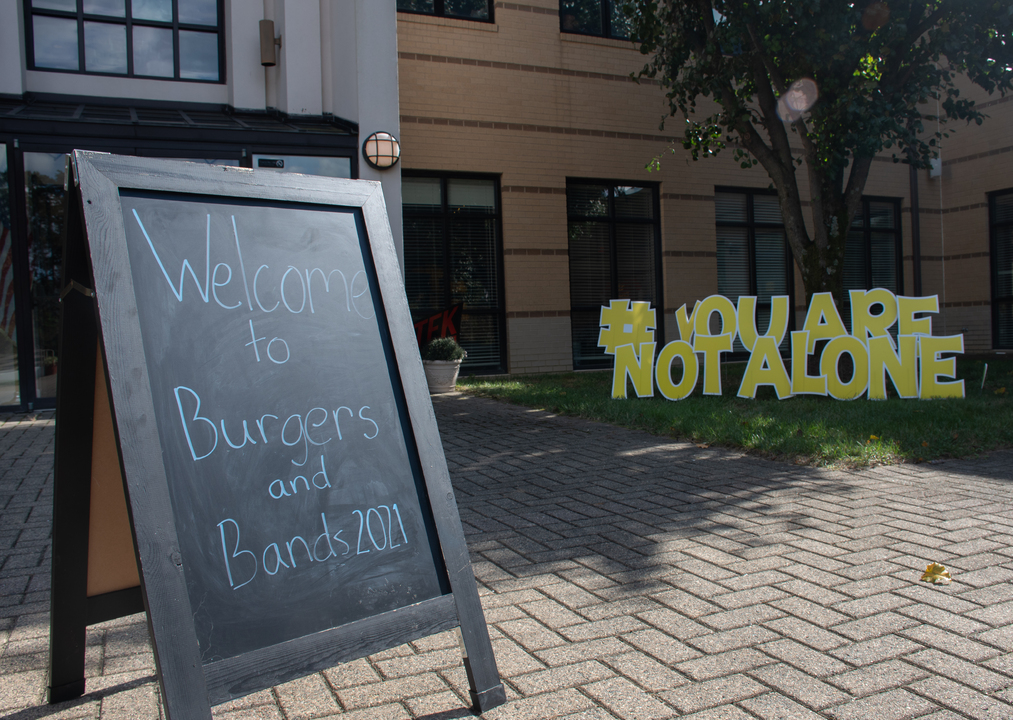 Welcome
to
Burgers
and
Bands 2021
# YOU ARE
NOT ALONE